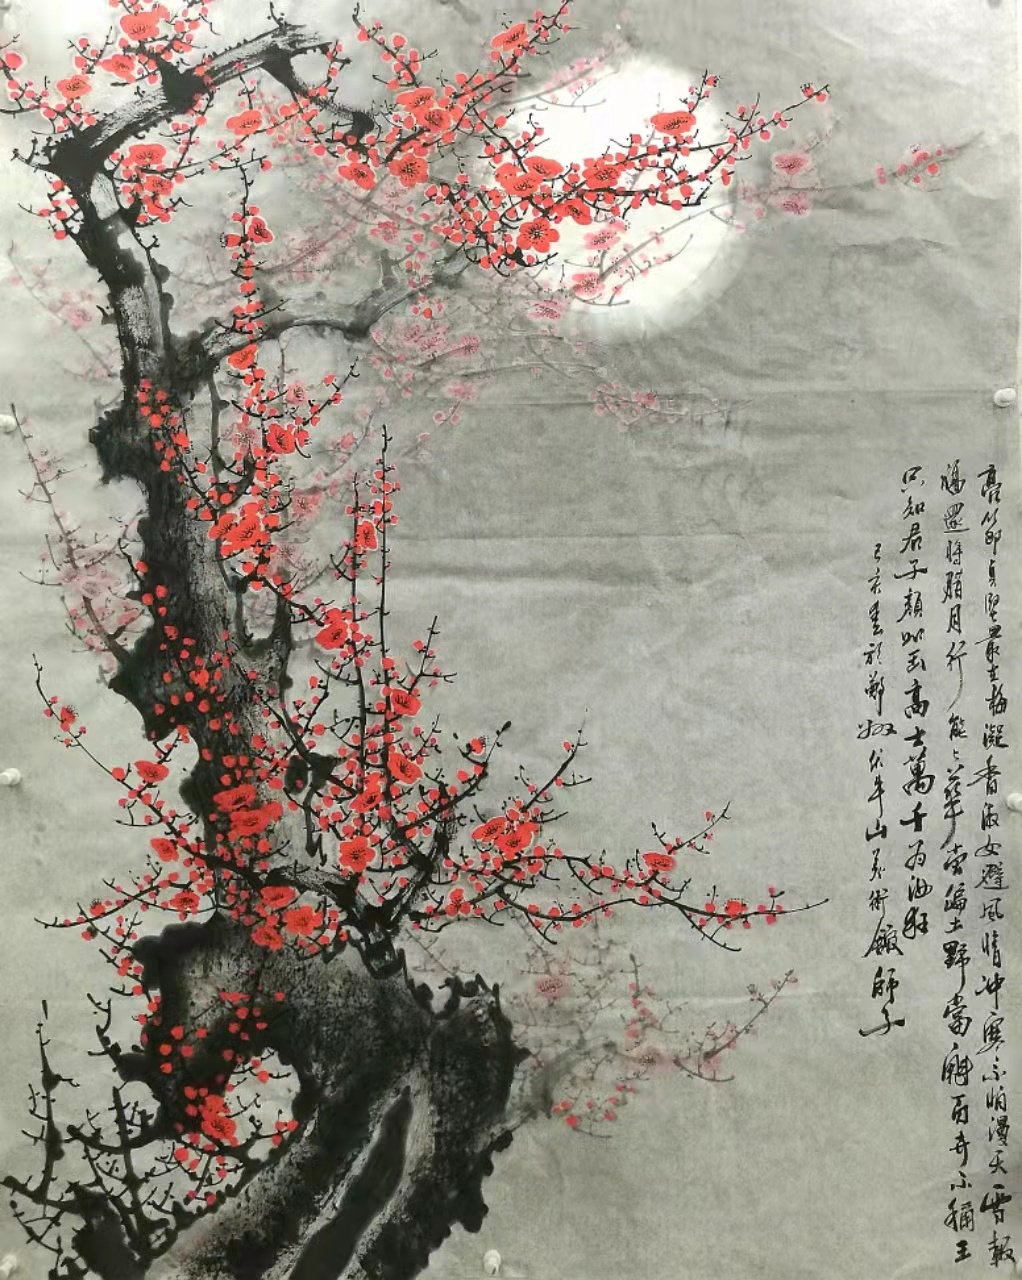 亮節貞堅最梅凝香淑女避風情冲寒不怕漫天雪報
福還將腊月行能土野當百卉不稱王
只知君子顏如玉高士萬千为汝狂
己亥春於鄭州伏牛山美術館師子